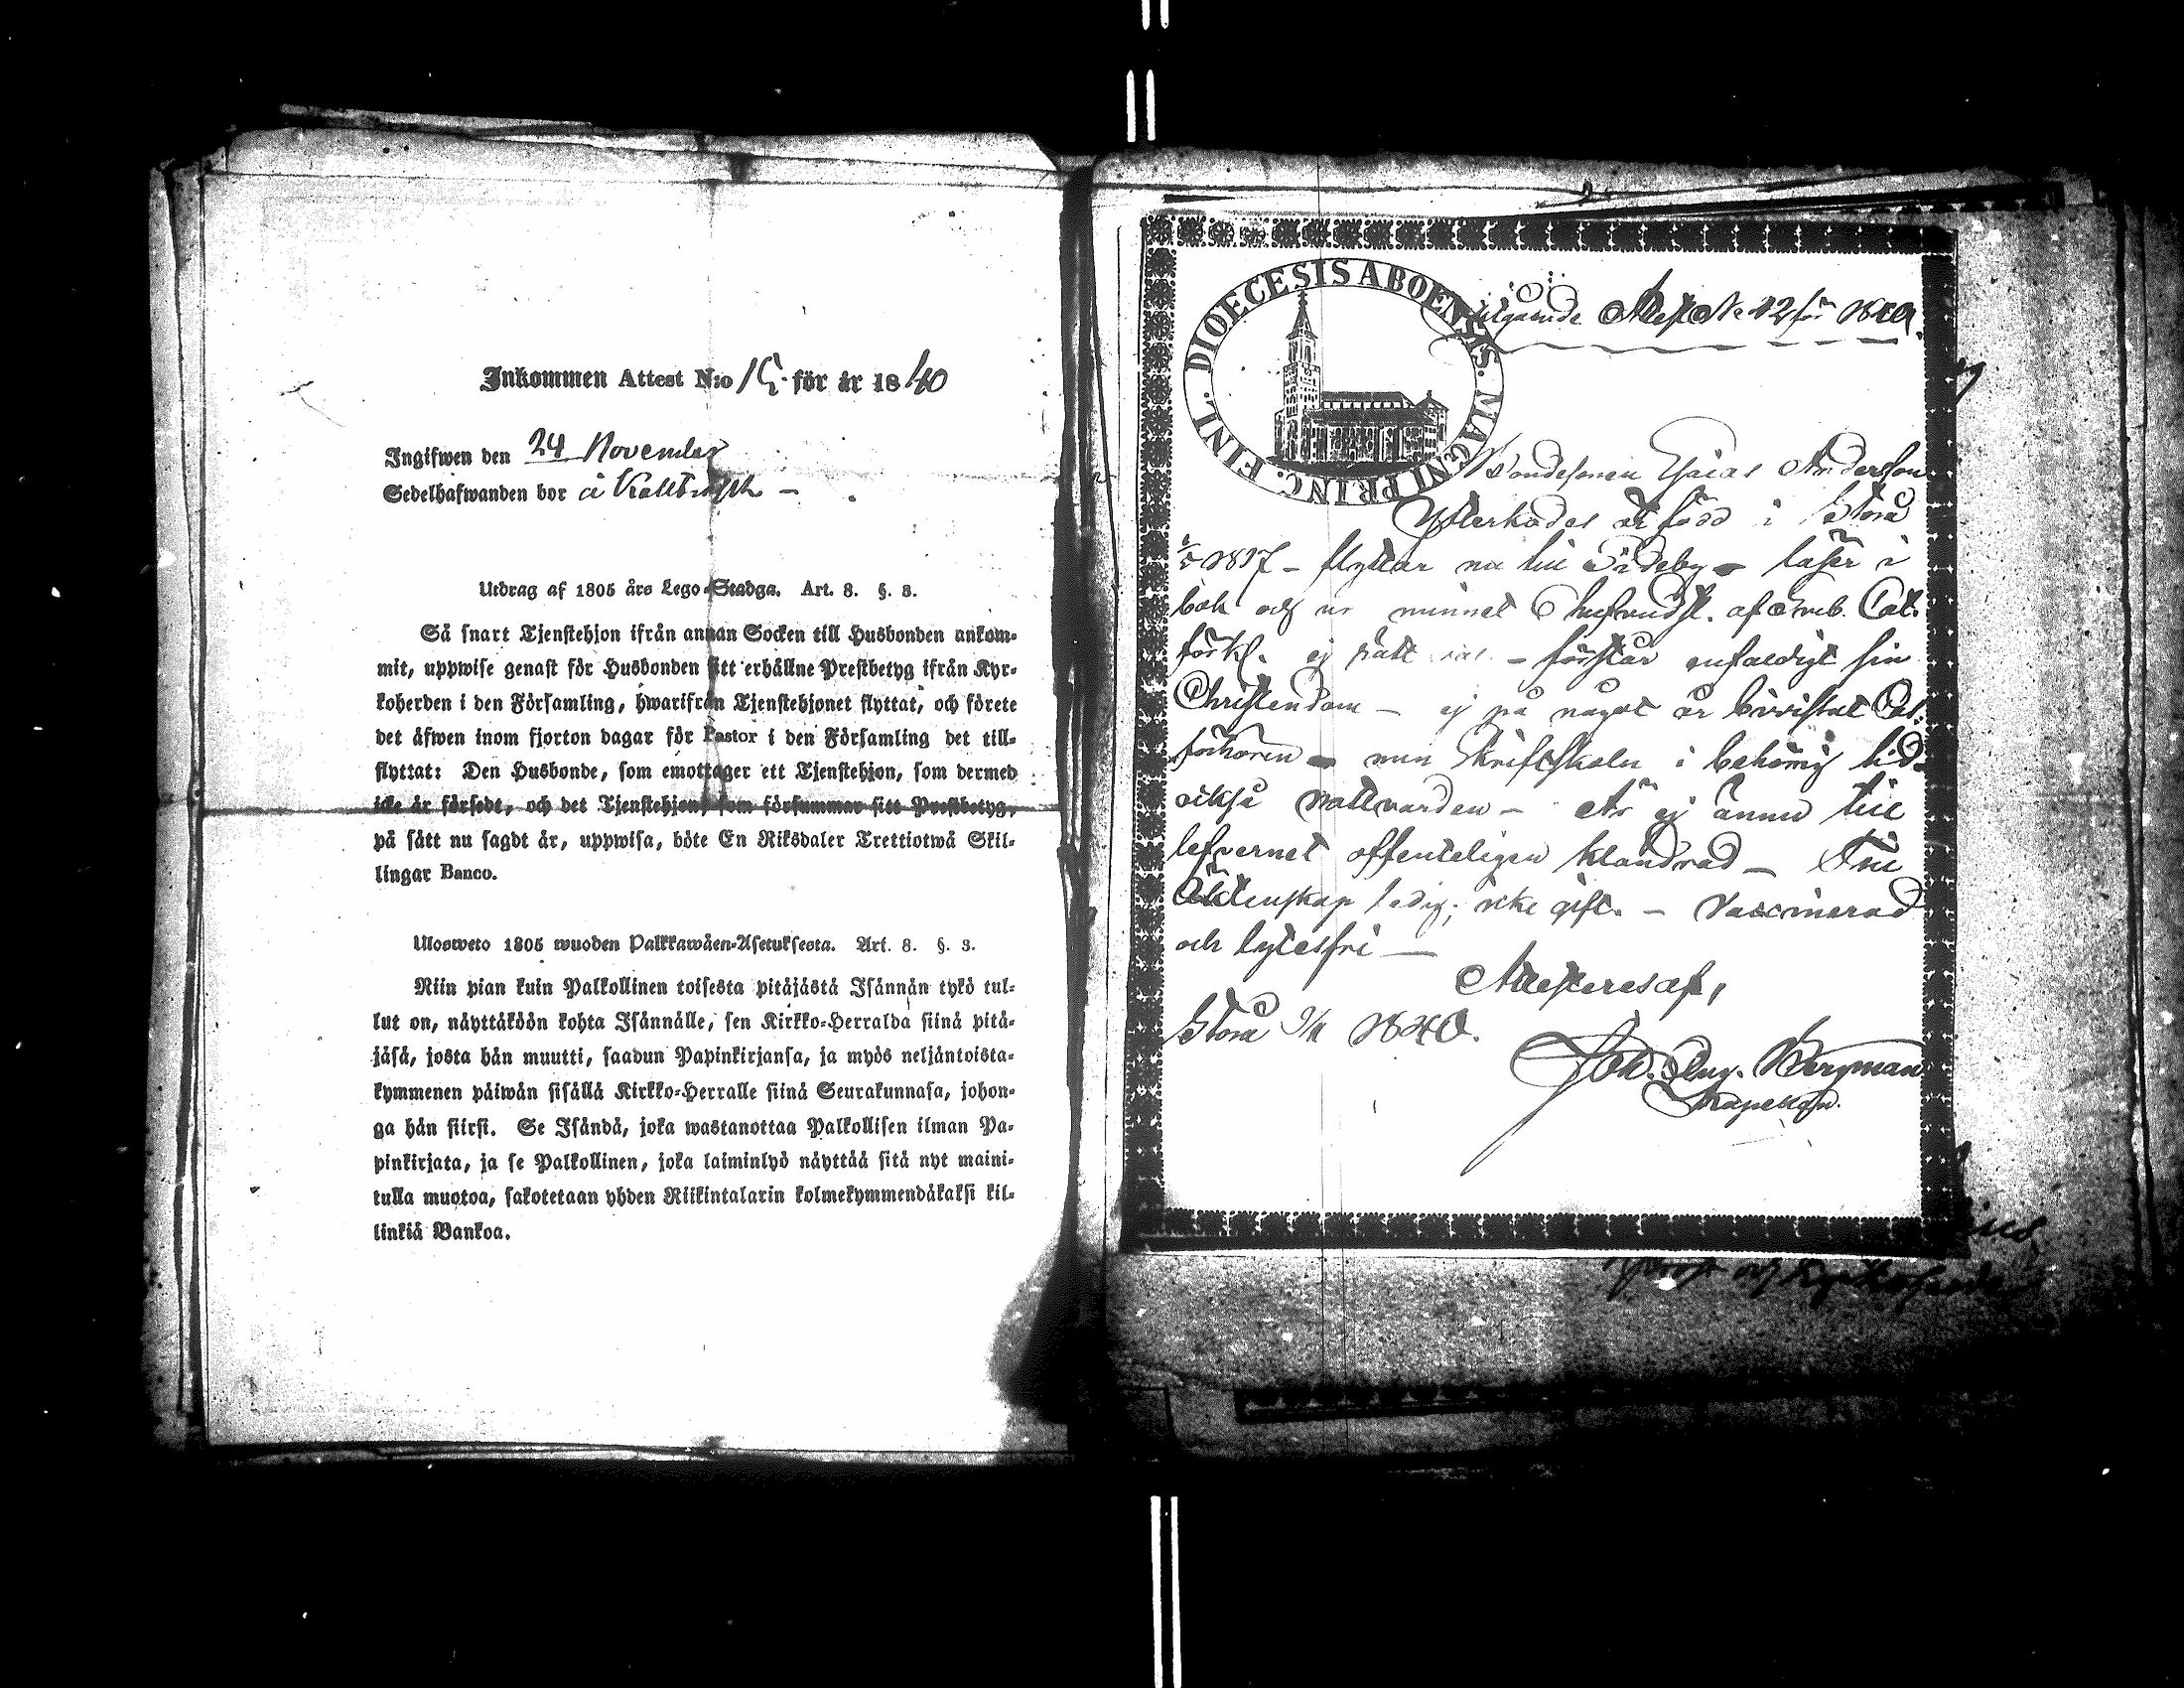 Inkommen Attest N:o för år 1840
Ingifwen den 24 November
Sedelhafwanden bor å
Utdrag af 1805 års Lego-Stadga. Art. 8. §. 3.
Så snart Tjenstehjon ifrån annan Socken till Husbonden ankom-
mit, uppwise genast för Husbonden sitt erhållne Prestbetyg ifrån Kyr-
koherden i den Församling, hwarifrån Tjenstehjonet flyttat, och förete
det äfwen inom fjorton dagar för Pastor i den Församling det till-
flyttat: Den Husbonde, som emottager ett Tjenstehjon, som dermed
icke är försedt, och det Tjenstehjon, som försummar sitt Prestbetyg,
på sätt nu sagdt är, uppwisa, böte En Riksdaler Trettiotwå Skil-
lingar Banco.
Ulosweto 1805 wuoden Palkkawäen-Asetuksesta. Art. 8. §. 3.
Niin pian kuin Palkollinen toisesta pitäjästä Isännän tykö tul-
lut on, näyttäköön kohta Isännälle, sen Kirkko-Herralda siinä pitä-
jäsä, josta hän muutti, saadun Papinkirjansa, ja myös neljäntoista-
kymmenen päiwän sisällä Kirkko-Herralle siinä Seurakunnasa, johon-
ga hän siirsi. Se Isändä, joka wastanottaa Palkollisen ilman Pa-
pinkirjata, ja se Palkollinen, joka laiminlyö näyttää sitä nyt maini-
tulla muotoa, sakotetaan yhden Riikintalarin kolmekymmendäkaksi kil-
linkiä Bankoa.
DIOECESIS ABOENSIS. MAGNI PRINC. FINL.
Utgående Attest No 12 för 1840
Bondesonen Esaias Andersson
Ytterkådes är född i Storå
1817 – flyttar nu till Sideby – läser i
bok och ur minnet hufvudst. af Catk.
förkl. ej rätt – förstår enfaldigt sin
Christendom – ej på något år bevistat Cat.
förhören – men Skriftskolan i behörig tid
också nattvarden – Är ej ännu till
lefvernet offenteligen klandrad – Till
Äktenskap ledig; icke gift. – Vaccinerad
och lytesfri –
Attesteras af,
Storå 1840.
Joh. Aug. Bergman
Kapellan.
Prost och Kyrkoherde